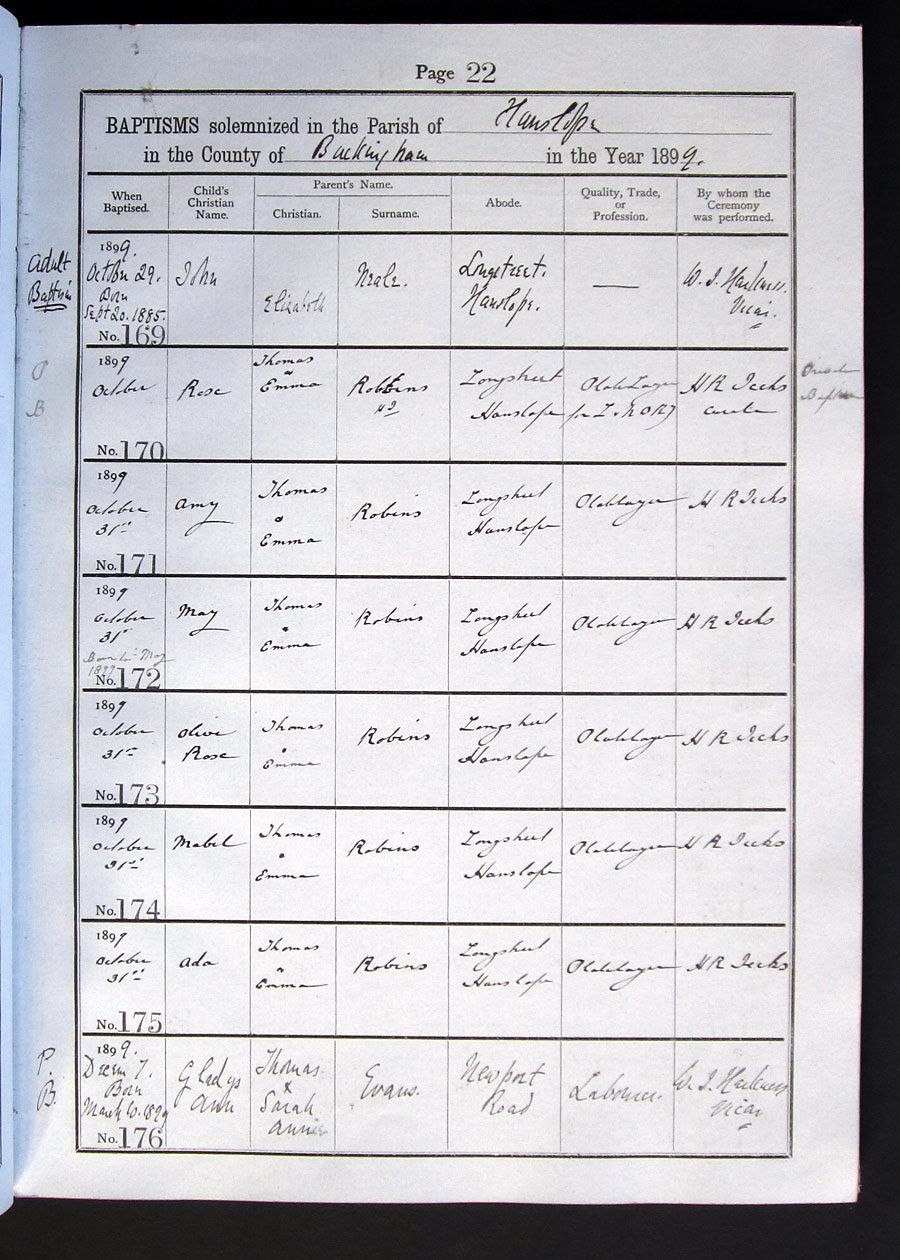 Page 22
BAPTISMS solemnized in the Parish of Hanslope
in the County of Buckingham in the Year 1899.
When Baptised.
Child's Christian Name.
Parent's Name.
Christian.
Surname.
Abode.
Quality, Trade, or Profession.
By whom the Ceremony was performed.
Adult
Baptism
1899.
October 29.
Born
Sept 20. 1885.
No. 169
John
Elizabeth
Neale.
Longstreet.
Hanslope.
W. J. Harkness.
Vicar.
P
B
1899
October
No. 170
Rose
Thomas
&
Emma
Robbins
Longstreet
Hanslope
Platelayer
for L & N W R
H R Jecks
curate
Private
Baptism
1899
October
31st
No. 171
Amy
Thomas
&
Emma
Robins
Longstreet
Hanslope
Platelayer
H R Jecks
1899
October
31st
Born May
1899
No. 172
May
Thomas
&
Emma
Robins
Longstreet
Hanslope
Platelayer
H R Jecks
1899
October
31st
No. 173
Olive
Rose
Thomas
&
Emma
Robins
Longstreet
Hanslope
Platelayer
H R Jecks
1899
October
31st
No. 174
Mabel
Thomas
&
Emma
Robins
Longstreet
Hanslope
Platelayer
H R Jecks
1899
October
31st
No. 175
Ada
Thomas
&
Emma
Robins
Longstreet
Hanslope
Platelayer
H R Jecks
P.
B.
1899.
Decem 7.
Born
March 10. 1899
No. 176
Gladys
Ann
Thomas
&
Sarah
Annie
Evans.
Newport
Road
Labourer.
W. J. Harkness
Vicar